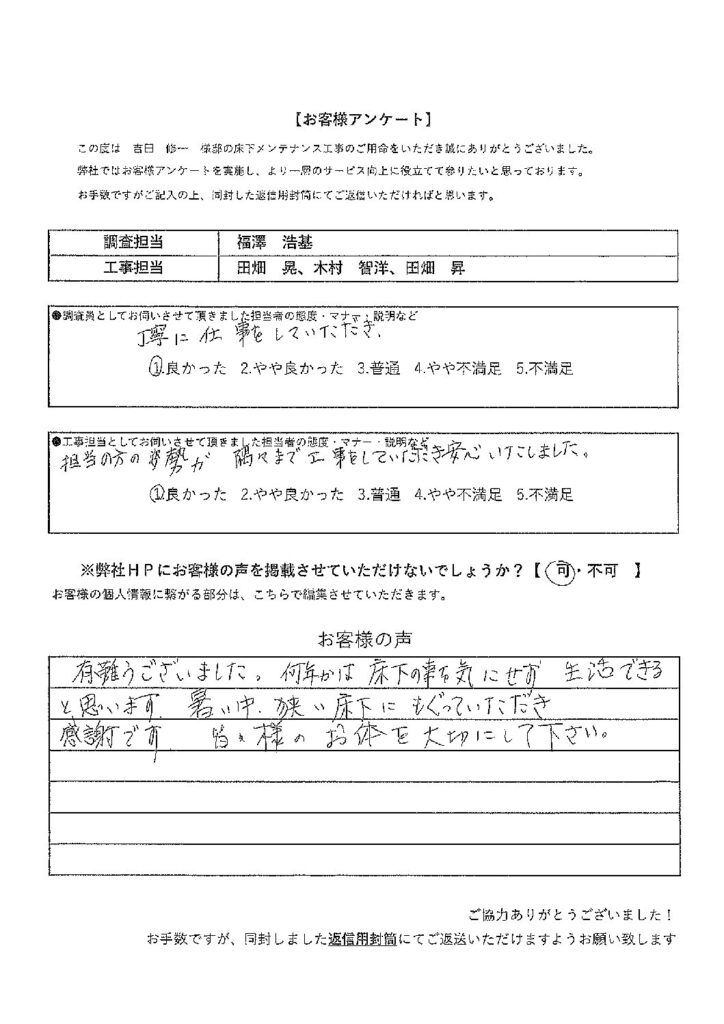 【お客様アンケート】
この度は 吉田 修一 様邸の床下メンテナンス工事のご用命をいただき誠にありがとうございました。
弊社ではお客様アンケートを実施し、より一層のサービス向上に役立てて参りたいと思っております。
お手数ですがご記入の上、同封した返信用封筒にてご返信いただければと思います。
調査担当 福澤 浩基
工事担当 田畑 晃、木村 智洋、田畑 昇
●調査員としてお伺いさせて頂きました担当者の態度・マナー・説明など
丁寧に仕事をしていただき、
①.良かった 2.やや良かった 3.普通 4.やや不満足 5.不満足
●工事担当としてお伺いさせて頂きました担当者の態度・マナー・説明など
担当の方の姿勢が 隅々まで工事をしていただき安心いたしました。
①.良かった 2.やや良かった 3.普通 4.やや不満足 5.不満足
※弊社HPにお客様の声を掲載させていただけないでしょうか？【 可・不可 】
お客様の個人情報に繋がる部分は、こちらで編集させていただきます。
お客様の声
有難うございました。何年かは床下の事を気にせず 生活できる
と思います。暑い中、狭い床下にもぐっていただき
感謝です。 皆々様のお体を大切にして下さい。
ご協力ありがとうございました！
お手数ですが、同封しました返信用封筒にてご返送いただけますようお願い致します